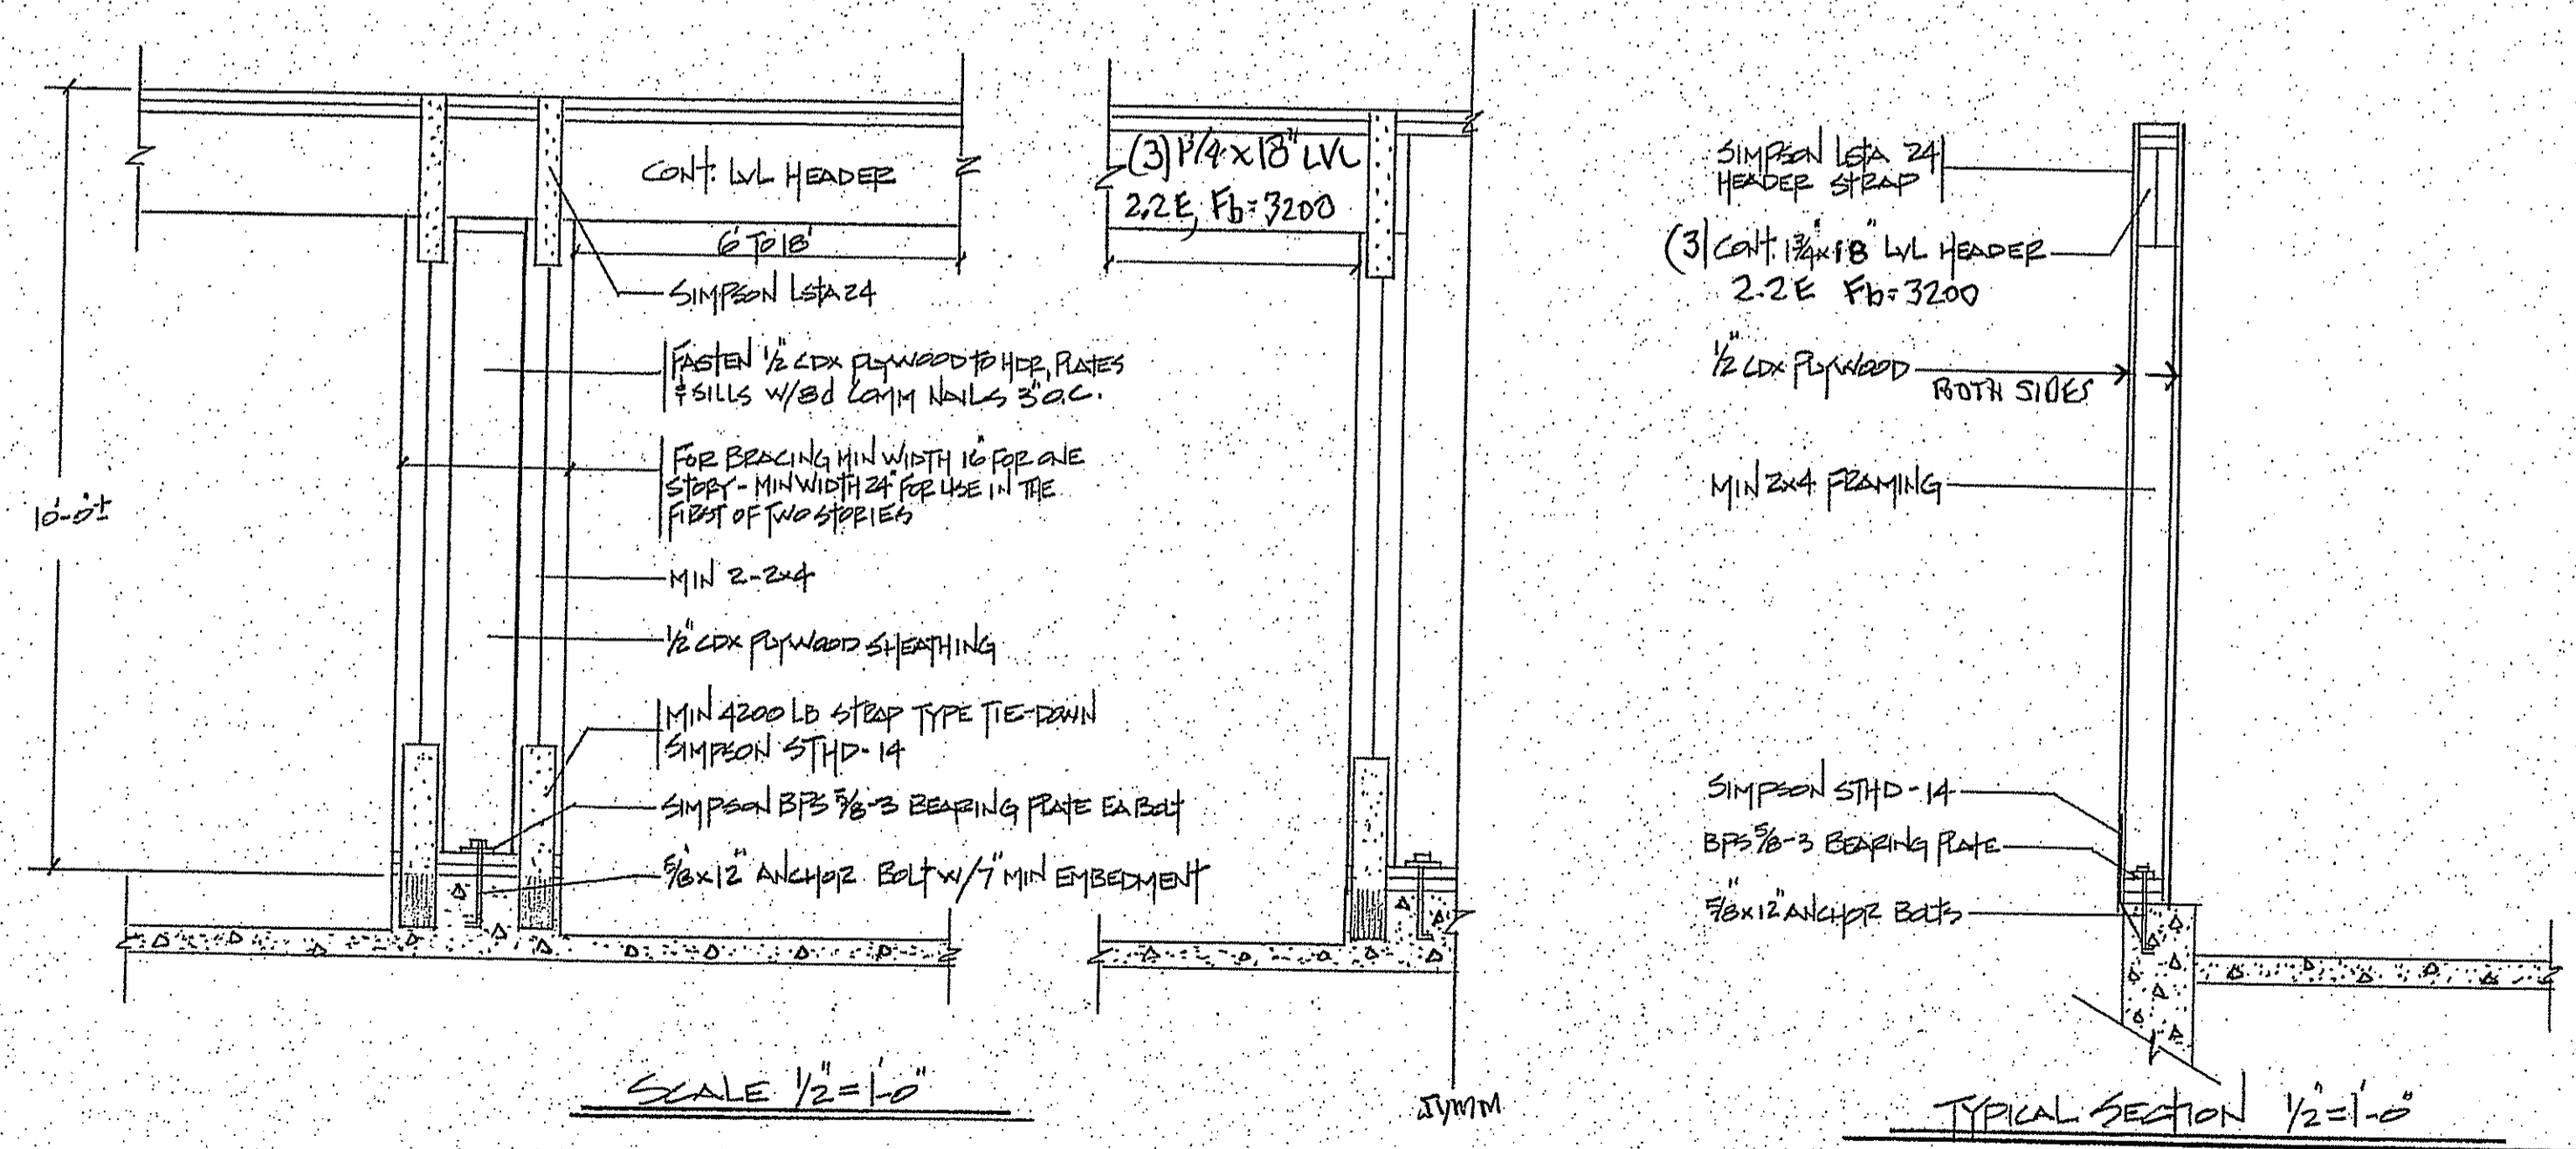 CONT. LVL HEADER
6' TO 18'
(3) 1 3/4 x 18" LVL
2.2E, Fb=3200
SIMPSON LSTA 24
FASTEN 1/2" CDX PLYWOOD TO HDR, PLATES
& SILLS W/8d COMM NAILS 3" O.C.
FOR BRACING MIN WIDTH 16" FOR ONE
STORY - MIN WIDTH 24" FOR USE IN THE
FIRST OF TWO STORIES
10'-0"±
MIN 2-2x4
1/2" CDX PLYWOOD SHEATHING
MIN 4200 LB STRAP TYPE TIE-DOWN
SIMPSON STHD-14
SIMPSON BPS 5/8-3 BEARING PLATE EA BOLT
5/8"x12" ANCHOR BOLT W/7" MIN EMBEDMENT
SCALE 1/2"=1'-0"
SYMM
SIMPSON LSTA 24
HEADER STRAP
(3) CONT. 1 3/4" x 18" LVL HEADER
2.2E Fb=3200
1/2" CDX PLYWOOD
BOTH SIDES
MIN 2x4 FRAMING
SIMPSON STHD-14
BPS 5/8-3 BEARING PLATE
5/8"x12" ANCHOR BOLTS
TYPICAL SECTION 1/2"=1'-0"